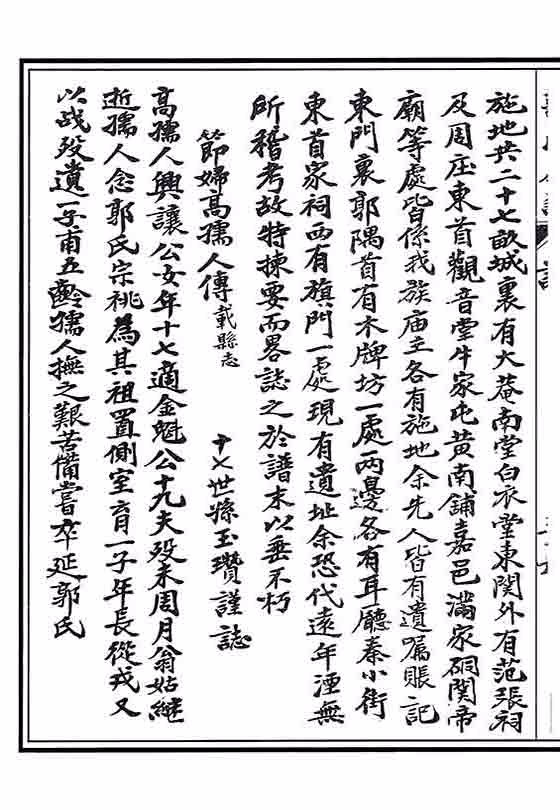 施地共二十七畝城裏有大菴南堂白衣堂東関外有范張祠
及周庄東首觀音堂牛家屯黄南舖嘉邑滿家硐関帝
廟等處皆係我族庙主各有施地余先人皆有遺嘱賬記
東門裏郭隅首有木牌坊一處两邊各有耳廳秦小街
東首家祠西有旗門一處現有遺址余恐代遠年湮無
所稽考故特揀要而畧誌之於譜末以垂不朽
十七世孫玉瓚謹誌
節婦高孺人傳載縣志
高孺人興讓公女年十七適金魁公十九夫殁未周月翁姑継
逝孺人念郭氏宗祧為其祖置側室育一子年長從戎又
以战殁遺一子甫五齡孺人撫之艱苦備嘗卒延郭氏